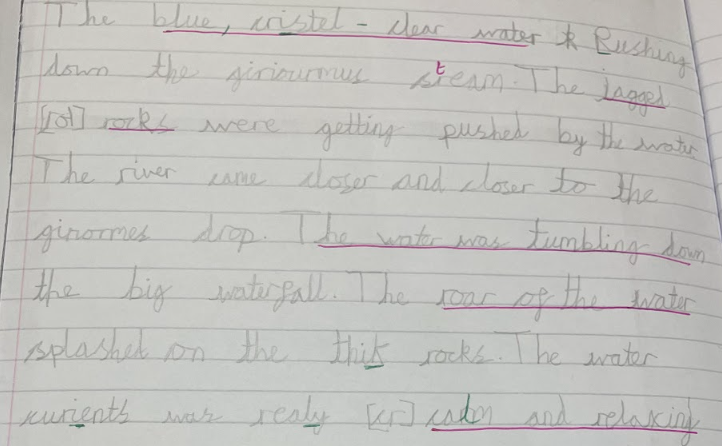 The blue, cristel - clear water * Rushing
down the giriourmus steam. The jagged
[rot] rocks were getting pushed by the water
The river came closer and closer to the
ginormes drop. The water was tumbling down
the big waterfall. The roar of the water
splashed on the thik rocks. The water
curients was realy [cr] calm and relaxing